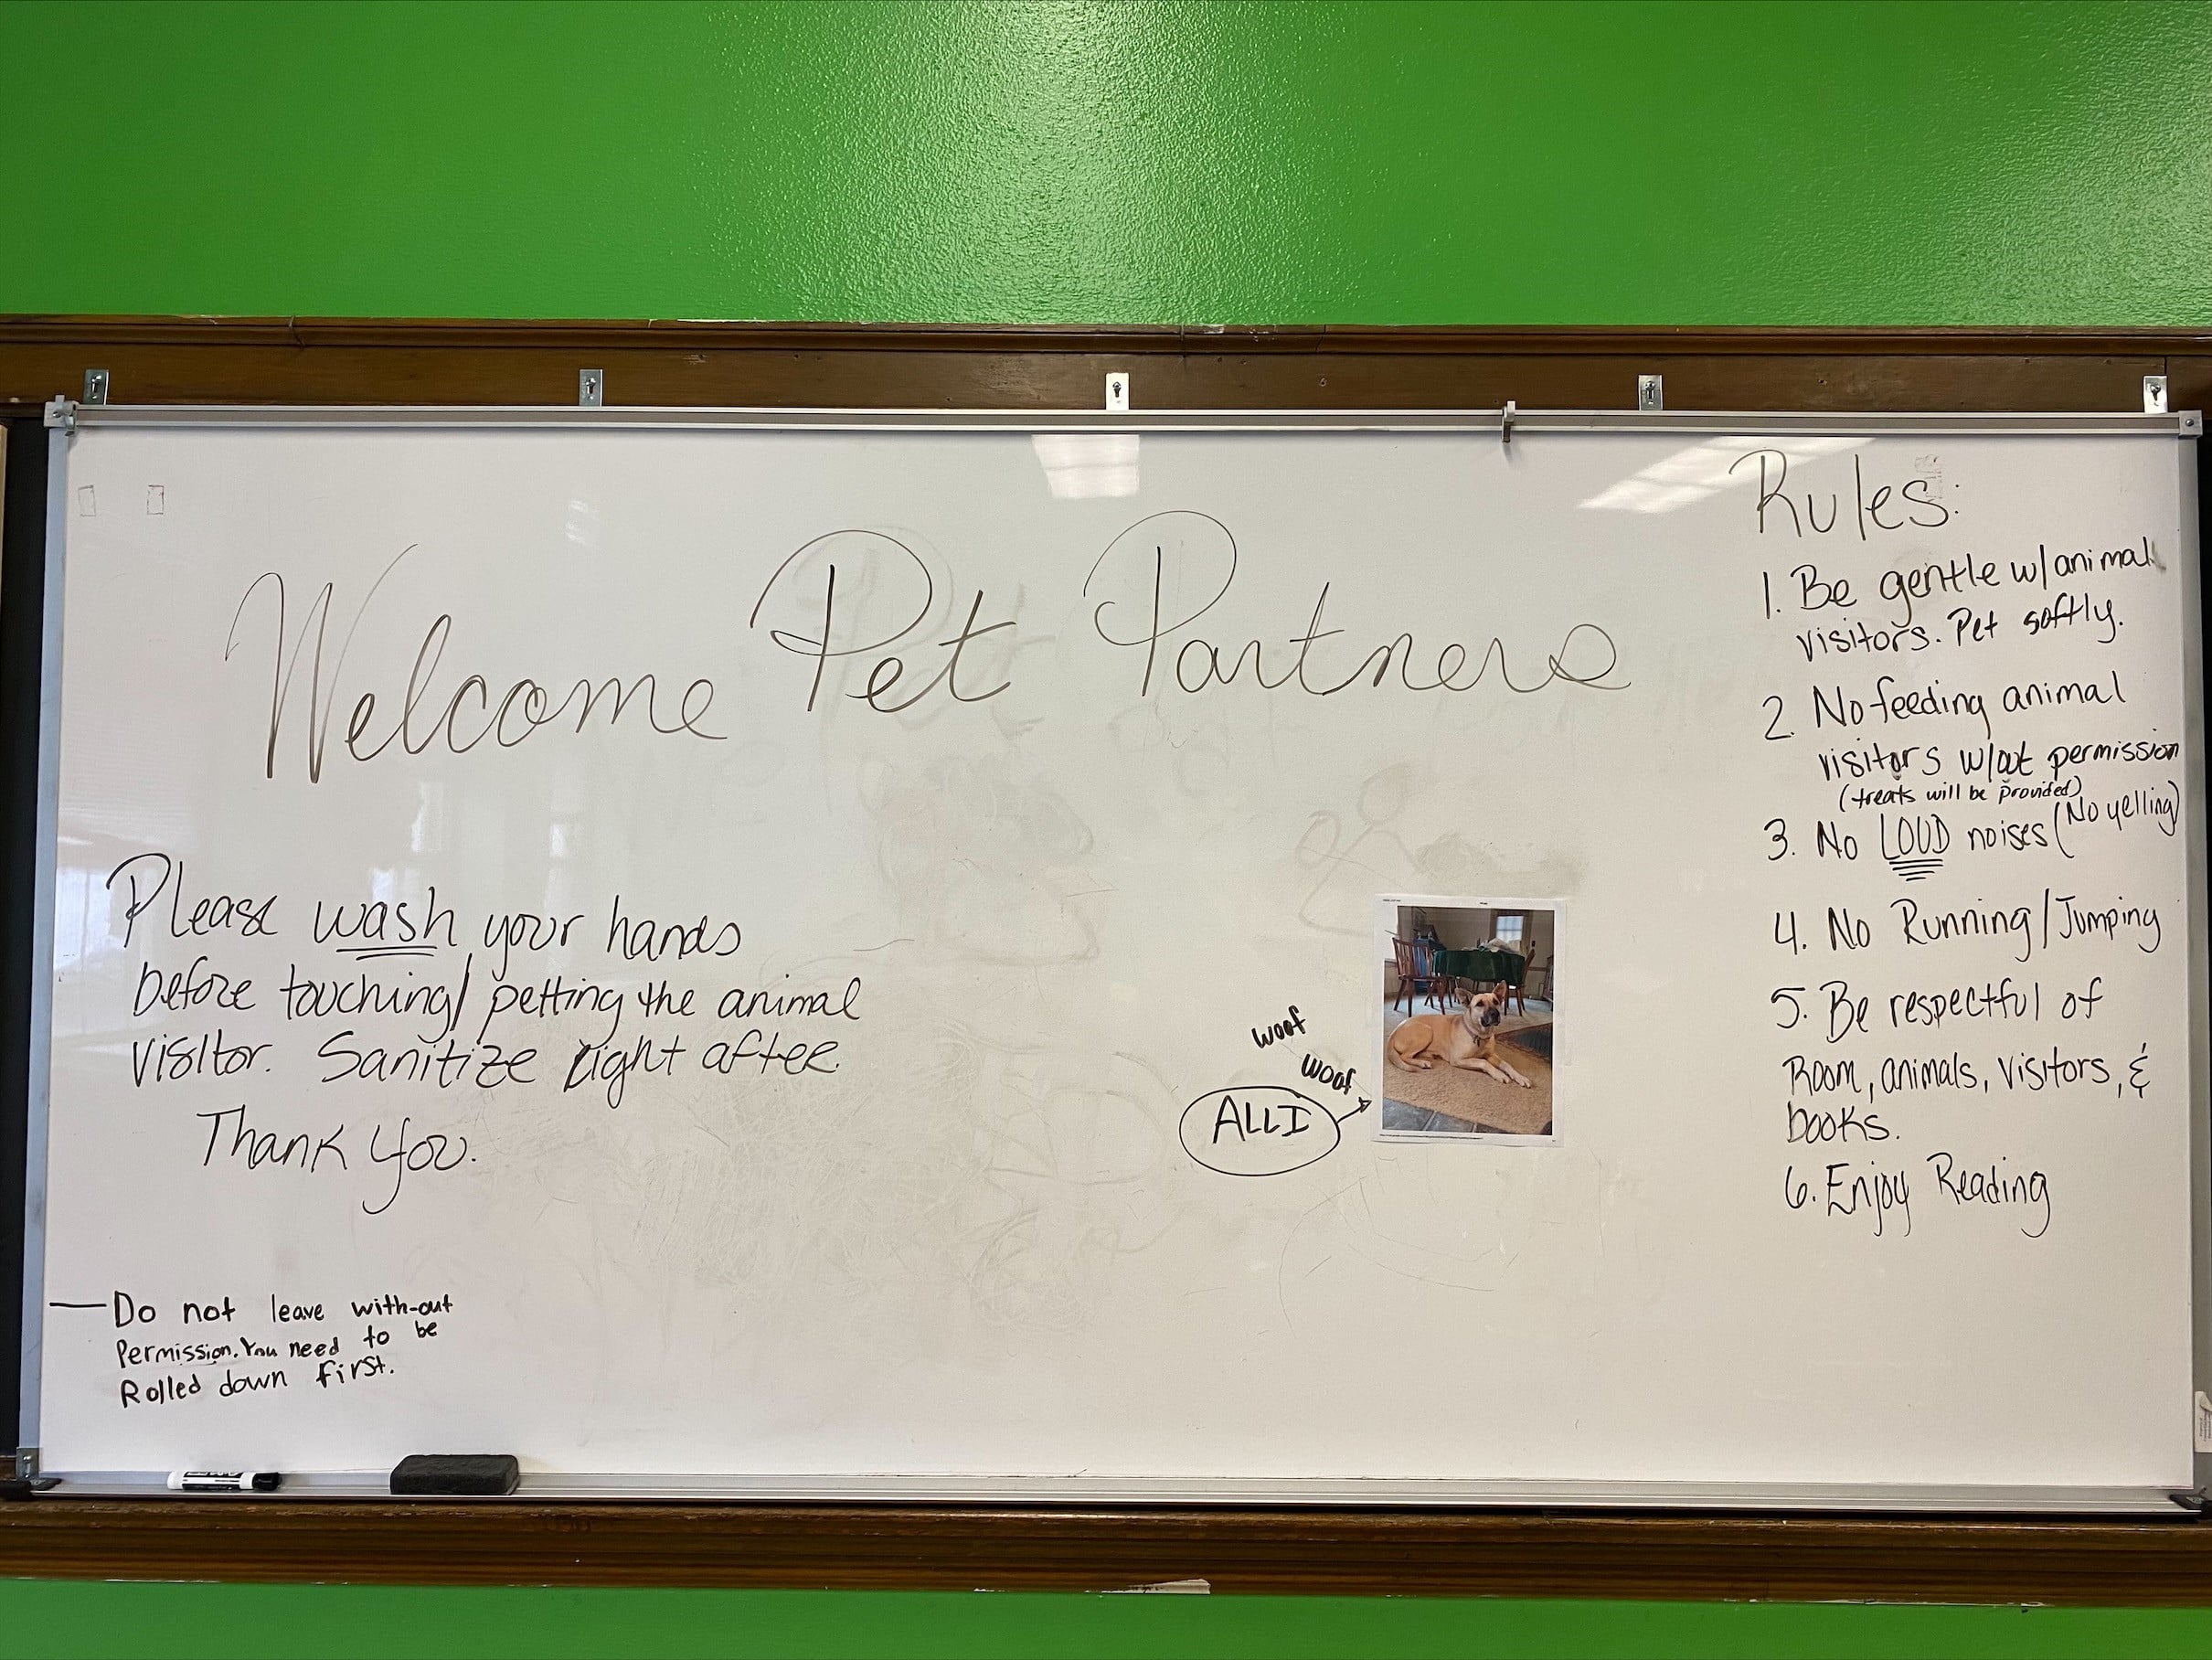 Welcome Pet Partners
Please wash your hands
before touching/petting the animal
visitor. Sanitize right after.
Thank you.
Do not leave with-out
Permission. You need to be
Rolled down first.
woof
woof
ALLI
Rules:
1. Be gentle w/animal
visitors. Pet softly.
2. No feeding animal
visitors w/out permission
(treats will be provided)
3. No LOUD noises (No yelling)
4. No Running/Jumping
5. Be respectful of
Room, animals, visitors, &
books.
6. Enjoy Reading